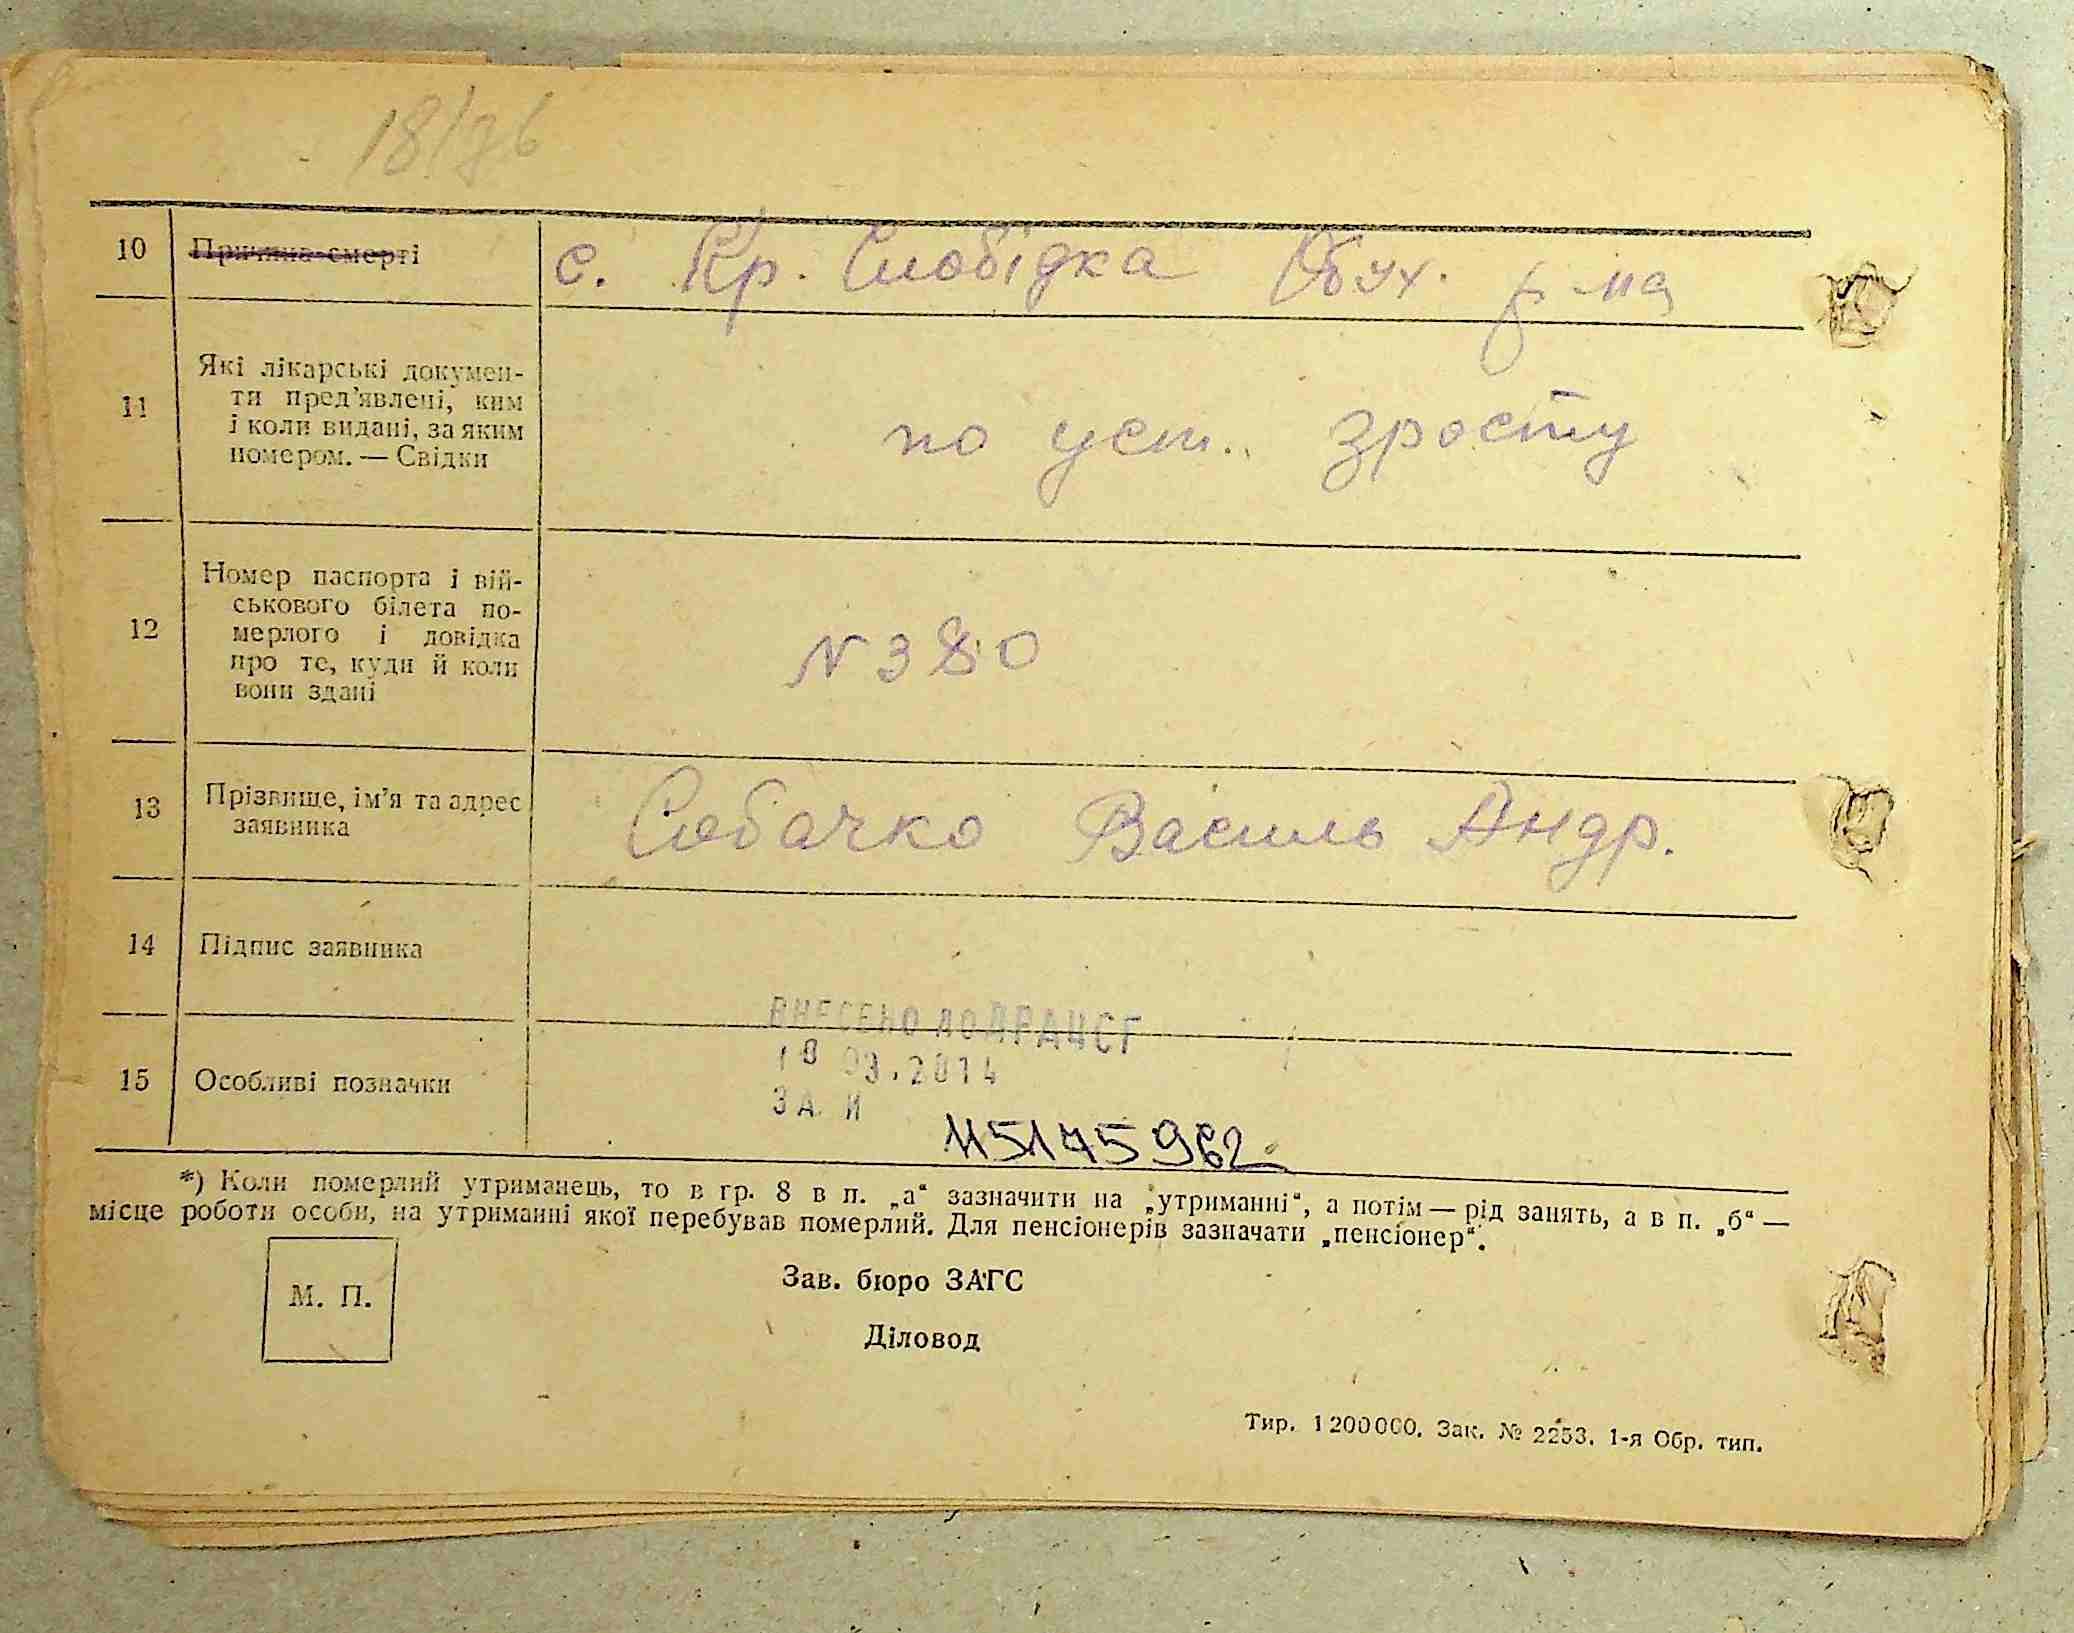 18/76
10 Причина смерті с. Кр. Слобідка Обух. р-на
11 Які лікарські докумен-
ти пред'явлені, ким
і коли видані, за яким
номером. — Свідки
по уст. зросту
12 Номер паспорта і вій-
ськового білета по-
мерлого і довідка
про те, куди й коли
вони здані
N 380
13 Прізвище, ім'я та адрес
заявника
Собачко Василь Андр.
14 Підпис заявника
ВНЕСЕНО ДО ДРАЦСГ
18 03.2014
15 Особливі позначки
ЗА №
115175962
*) Коли померлий утриманець, то в гр. 8 в п. „а“ зазначити на „утриманні“, а потім — рід занять, а в п. „б“ —
місце роботи особи, на утриманні якої перебував померлий. Для пенсіонерів зазначати „пенсіонер“.
М. П.
Зав. бюро ЗАГС
Діловод
Тир. 1 200 000. Зак. № 2253. 1-я Обр. тип.